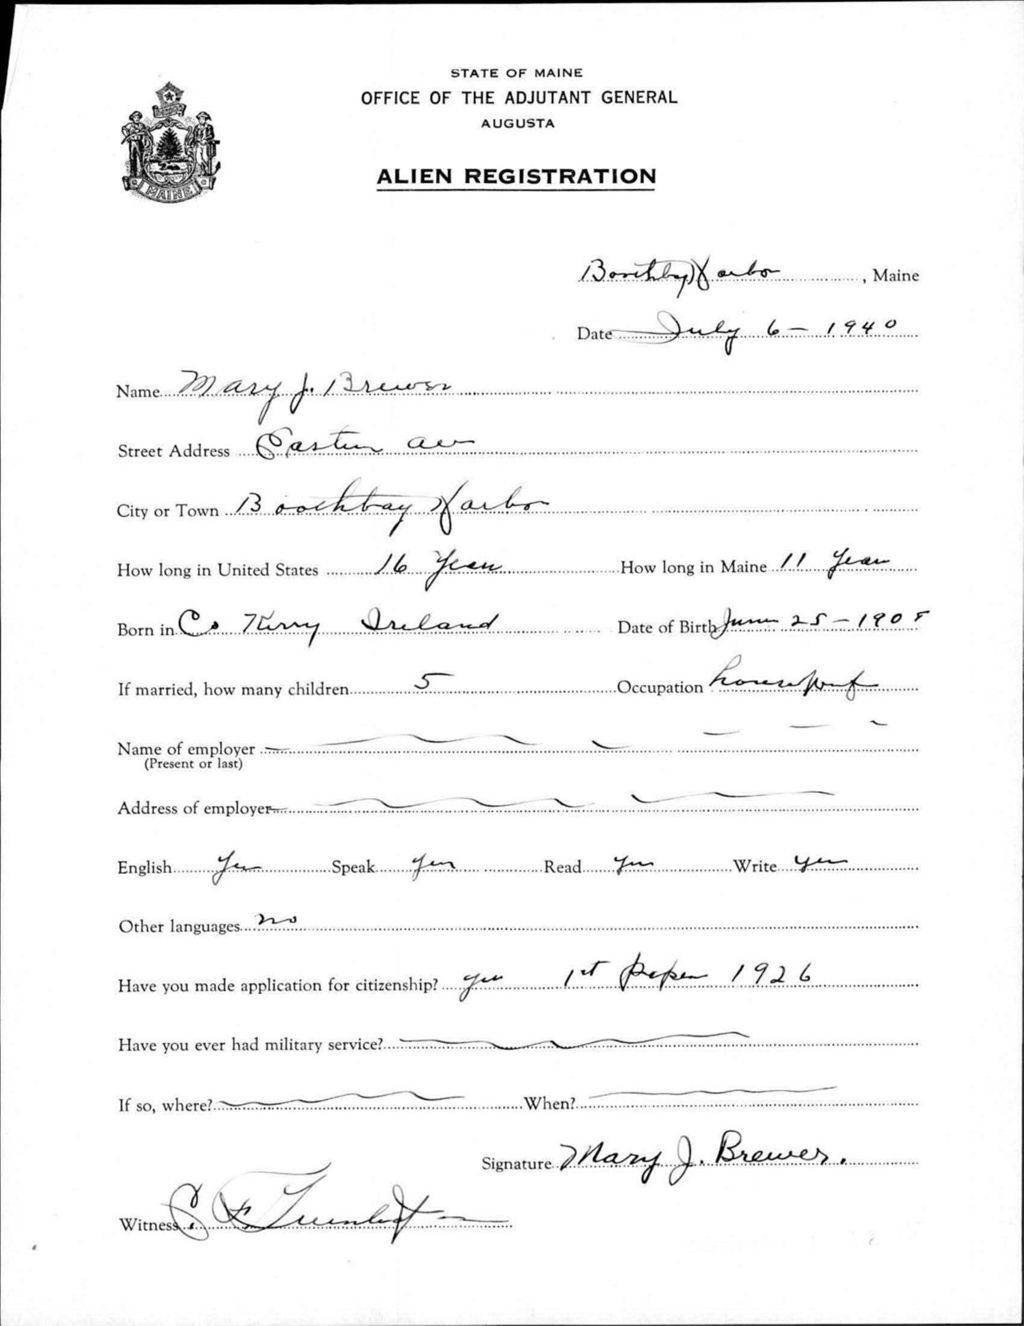 STATE OF MAINE
OFFICE OF THE ADJUTANT GENERAL
AUGUSTA
ALIEN REGISTRATION
MAINE
Boothbay Harbor, Maine
Date July 6 - 1940
Name Mary J. Brewer
Street Address Eastern Ave
City or Town Boothbay Harbor
How long in United States 16 Years How long in Maine 11 Years
Born in Co Kerry Ireland Date of Birth June 25 - 1908
If married, how many children 5 Occupation housewife
Name of employer
(Present or last)
Address of employer
English Yes Speak Yes Read Yes Write Yes
Other languages no
Have you made application for citizenship? yes 1st paper 1926
Have you ever had military service?
If so, where? When?
Signature Mary J. Brewer.
Witness C. F.